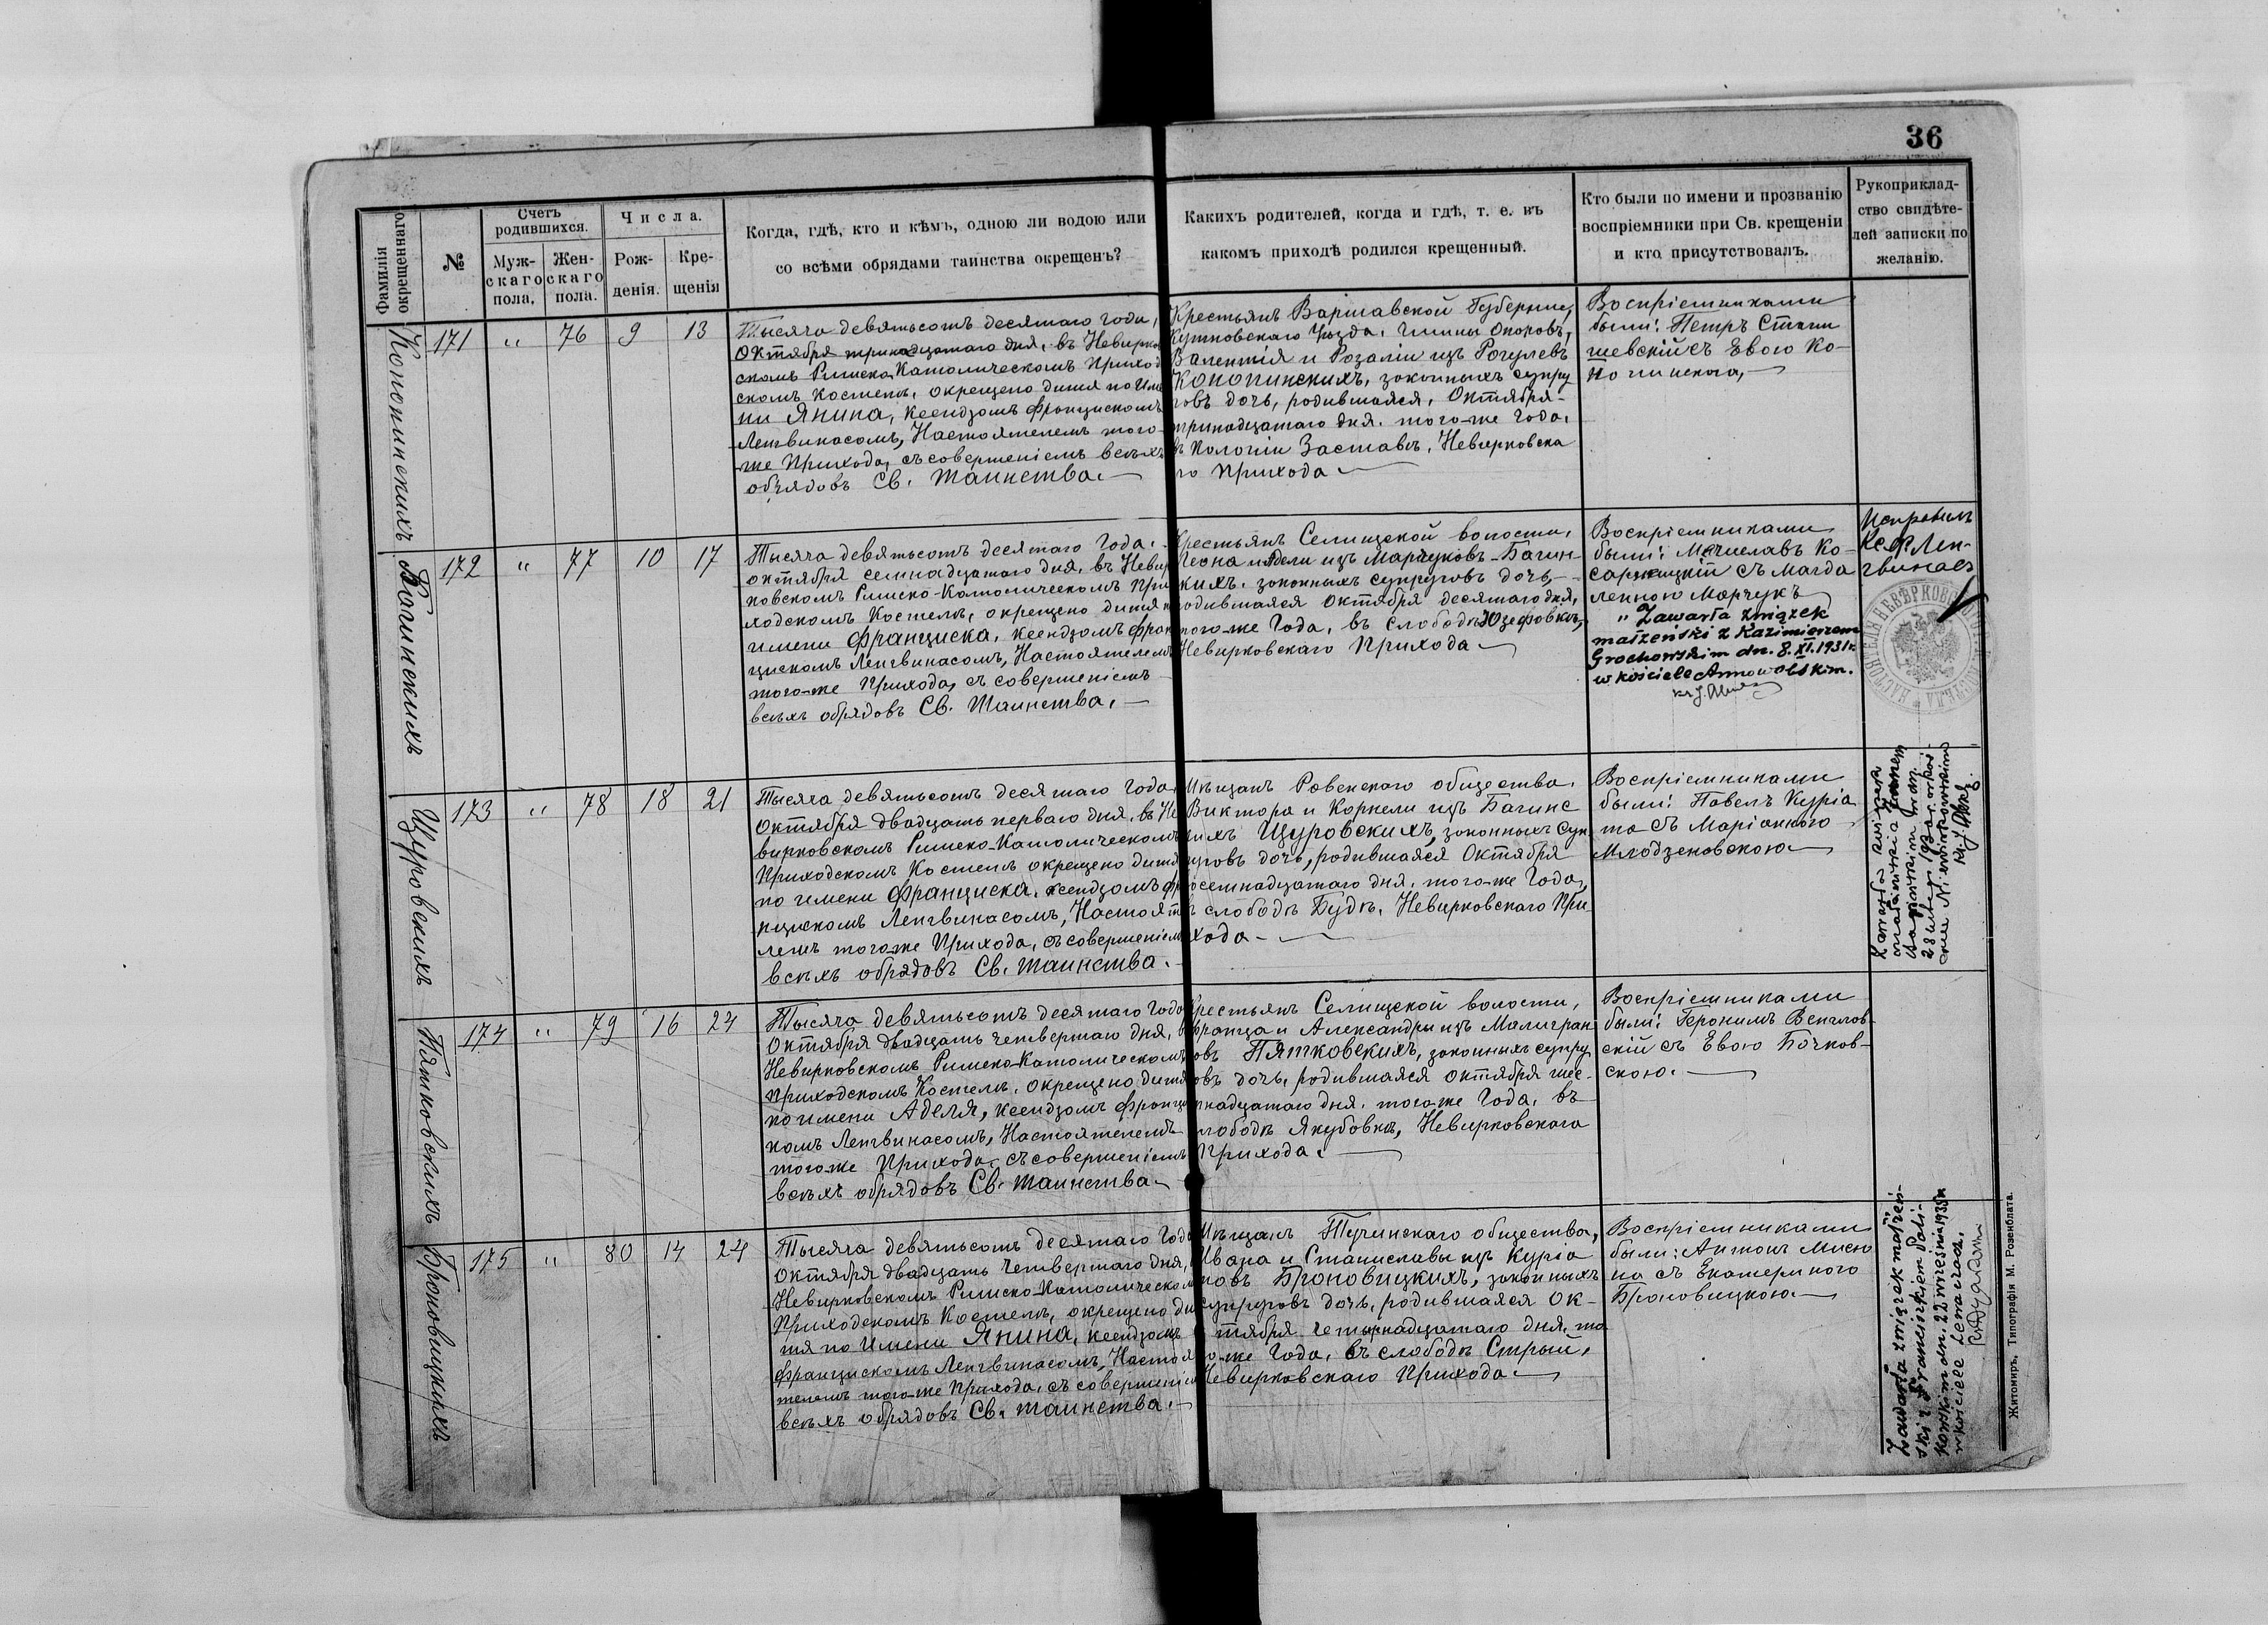 36
Фамилія окрещеннаго
№
Счетъ родившихся.
Муж-скаго пола,
Жен-скаго пола.
Числа.
Рож-денія.
Кре-щенія
Когда, гдѣ, кто и кѣмъ, одною ли водою или
со всѣми обрядами таинства окрещенъ?
Какихъ родителей, когда и гдѣ, т. е. въ
какомъ приходѣ родился крещенный.
Кто были по имени и прозванію
воспріемники при Св. крещеніи
и кто присутствовалъ.
Рукоприклад-
ство свидѣте-
лей записки по
желанію.
Кононинскихъ
171 " 76 9 13
Тысяча девятьсотъ десятаго года,
Октября тринадцатаго дня, въ Невирков
скомъ Римско-Католическомъ Приход
скомъ костелѣ, окрещено дитя по Име
ни Янина, Ксендзомъ Францискомъ
Ленгвинасомъ, Настоятелемъ того-
же Прихода, съ совершеніемъ всѣхъ
обрядовъ Св. Таинства.
Крестьянъ Варшавской Губерніи,
Кутновскаго Уѣзда, Гмины Опоровъ,
Валентія и Розаліи изъ Рогулевъ
Кононинскихъ, законныхъ супру
говъ дочь, родившаяся, Октября
тринадцатаго дня, того-же Года,
въ Колоніи Заставѣ, Невирковска
го Прихода
Воспріемниками
были: Петръ Стани
шевскій съ Евою Ко-
нонинскою,
Багинскихъ
172 " 77 10 17
Тысяча девятьсотъ десятаго Года,
октября семнадцатаго дня, въ Невир
ковскомъ Римско-Католическомъ При
ходскомъ Костелѣ, окрещено дитя п
имени Франциска, Ксендзомъ Фран
цискомъ Ленгвинасомъ, Настоятелемъ
того-же Прихода, съ совершеніемъ
всѣхъ обрядовъ Св. Таинства,
Крестьянъ Селищской волости,
Леона и Адели изъ Марчуковъ-Багин-
скихъ, законныхъ супруговъ дочь,
родившаяся Октября десятаго дня,
того-же Года, въ слободѣ Юзефовкѣ,
Невирковскаго Прихода
Воспріемниками
были: Мечиславъ Ко-
саржицкій съ Магда
леною Марчукъ
" Zawarła związek
małżeński z Kazimierzem
Grochowskim dn. 8.XI.1931 r.
w kościele Annowolskim.
Исправилъ
Кс. Ф. Лен-
гвинасъ
Щуровскихъ
173 " 78 18 21
Тысяча девятьсотъ десятаго Года,
Октября двадцать перваго дня, въ Не
вирковскомъ Римско-Католическомъ
Приходскомъ Костелѣ окрещено дитя
по имени Франциска, ксендзомъ Фра
нцискомъ Ленгвинасомъ, Настояте
лемъ того-же Прихода, съ совершеніемъ
всѣхъ обрядовъ Св. Таинства.
Мѣщанъ Ровенскаго общества,
Виктора и Корнели изъ Багинс
кихъ Щуровскихъ, законныхъ Суп
руговъ дочь, родившаяся Октября
восемнадцатаго дня, того-же Года,
въ слободѣ Будкѣ, Невирковскаго При
хода
Воспріемниками
были: Павелъ Куріа
та съ Маріанною
Млодзеновскою
Zawarła związek
małżeński z Janem
28 lutego
Пятковскихъ
174 " 79 16 24
Тысяча девятьсотъ десятаго Года
Октября двадцать четвертаго дня, въ
Невирковскомъ Римско-Католическомъ
Приходскомъ Костелѣ, окрещено дитя
по имени Аделя, Ксендзомъ Францис
комъ Ленгвинасомъ, Настоятелемъ
того-же Прихода, съ совершеніемъ
всѣхъ обрядовъ Св. Таинства
Крестьянъ Селищской волости,
Франца и Александры изъ Малигран
овъ Пятковскихъ, законныхъ супру
говъ дочь, родившаяся октября шес-
тнадцатаго дня, того-же Года, въ
слободѣ Якубовкѣ, Невирковскаго
Прихода.
Воспріемниками
были: Геронимъ Венглов-
скій съ Евою Бочков-
скою.
Броновицкихъ
175 " 80 14 24
Тысяча девятьсотъ десятаго Года
Октября двадцать четвертаго дня, въ
Невирковскомъ Римско-Католическомъ
Приходскомъ Костелѣ, окрещено ди
тя по Имени Янина, Ксендзомъ
Францискомъ Ленгвинасомъ, Настоя
телемъ того-же Прихода, съ совершеніемъ
всѣхъ обрядовъ Св. таинства.
Мѣщанъ Тучинскаго общества,
Ивана и Станиславы изъ Куріа
новъ Броновицкихъ, законныхъ
супруговъ дочь, родившаяся Ок-
тября четырнадцатаго дня, то
го-же Года, въ слободѣ Стрый,
Невирковскаго Прихода
Воспріемниками
были: Антонъ Мисю
на съ Екатериною
Броновицкою
Zawarła związek małżeń-
ski z Franciszkiem Pali-
kowskim dn. 22 września 1935 r.
w kościele
Житомиръ, Типографія М. Розенблата.